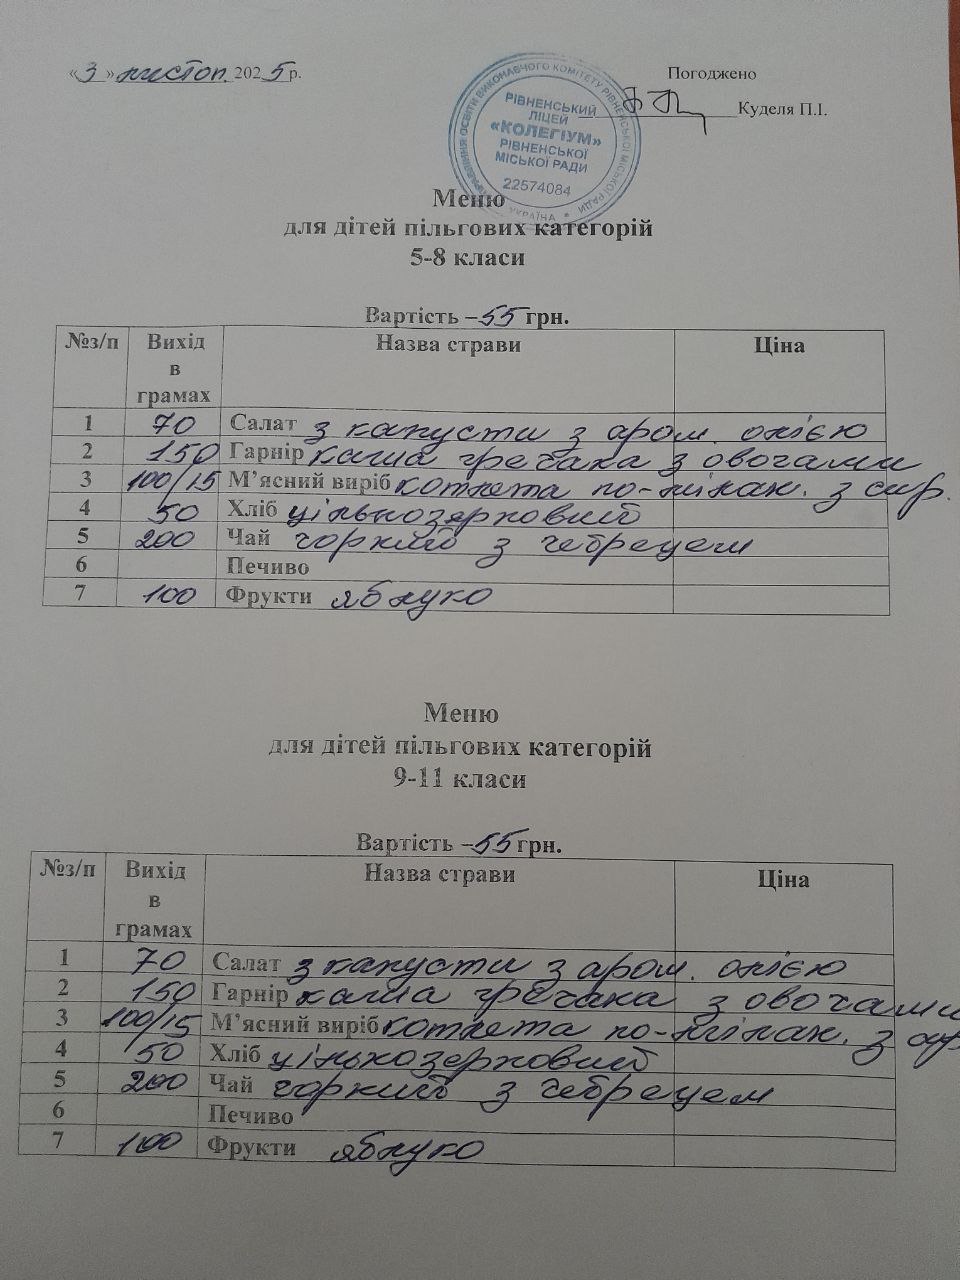 «3» листоп. 2025 р.
Погоджено
Куделя П.І.
УПРАВЛІННЯ ОСВІТИ ВИКОНАВЧОГО КОМІТЕТУ РІВНЕНСЬКОЇ МІСЬКОЇ РАДИ
РІВНЕНСЬКИЙ
ЛІЦЕЙ
«КОЛЕГІУМ»
РІВНЕНСЬКОЇ
МІСЬКОЇ РАДИ
22574084
УКРАЇНА
Меню
для дітей пільгових категорій
5-8 класи
Вартість – 55 грн.
№з/п Вихід в грамах Назва страви Ціна
1 70 Салат з капусти з аром. олією
2 150 Гарнір каша гречана з овочами
3 100/15 М’ясний виріб котлета по-мілан. з сир.
4 50 Хліб цільнозерновий
5 200 Чай чорний з чебрецем
6 Печиво
7 100 Фрукти яблуко
Меню
для дітей пільгових категорій
9-11 класи
Вартість – 55 грн.
№з/п Вихід в грамах Назва страви Ціна
1 70 Салат з капусти з аром. олією
2 150 Гарнір каша гречана з овочами
3 100/15 М’ясний виріб котлета по-мілан. з сир.
4 50 Хліб цільнозерновий
5 200 Чай чорний з чебрецем
6 Печиво
7 100 Фрукти яблуко